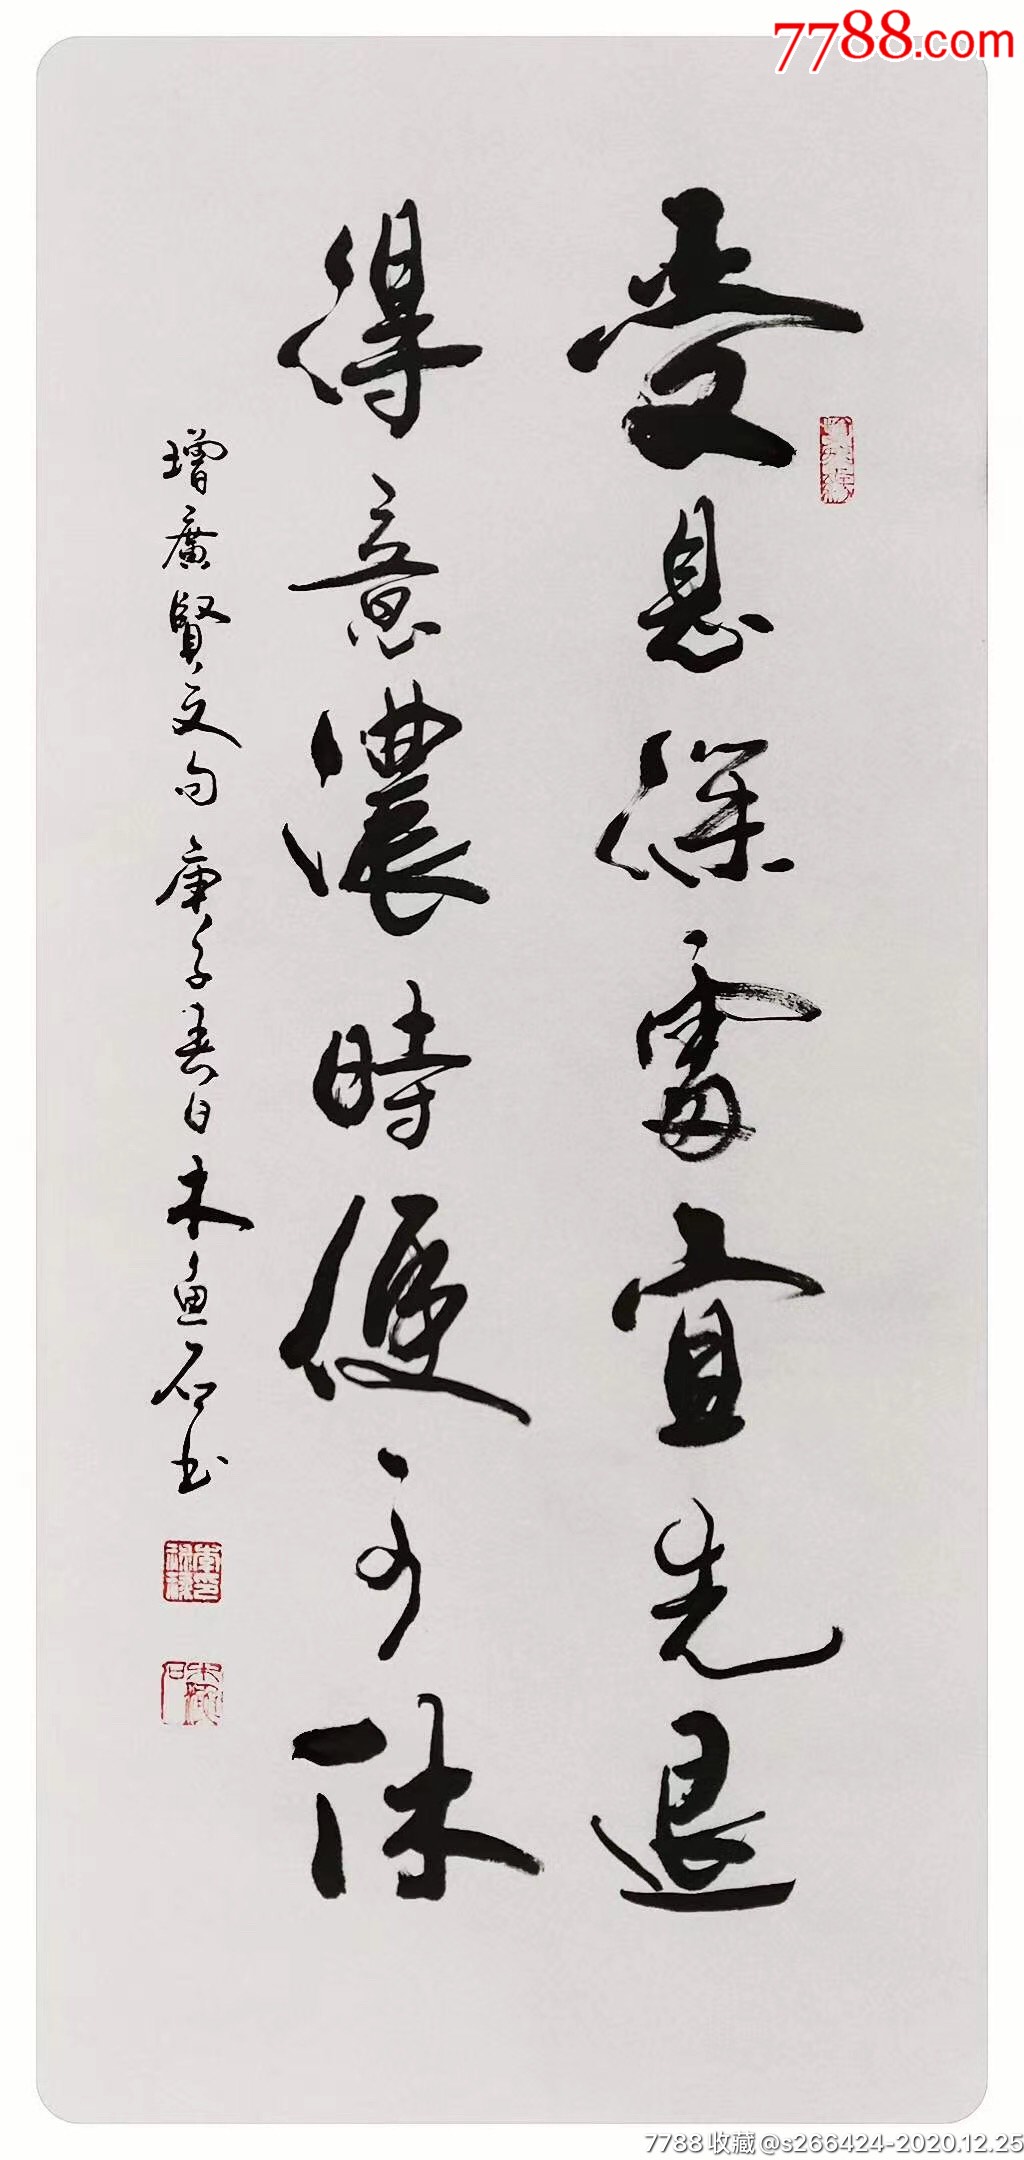 7788.com
受恩深處宜先退
得意濃時便可休
增廣賢文句庚子春日木鱼石书
7788收藏@s266424-2020.12.25